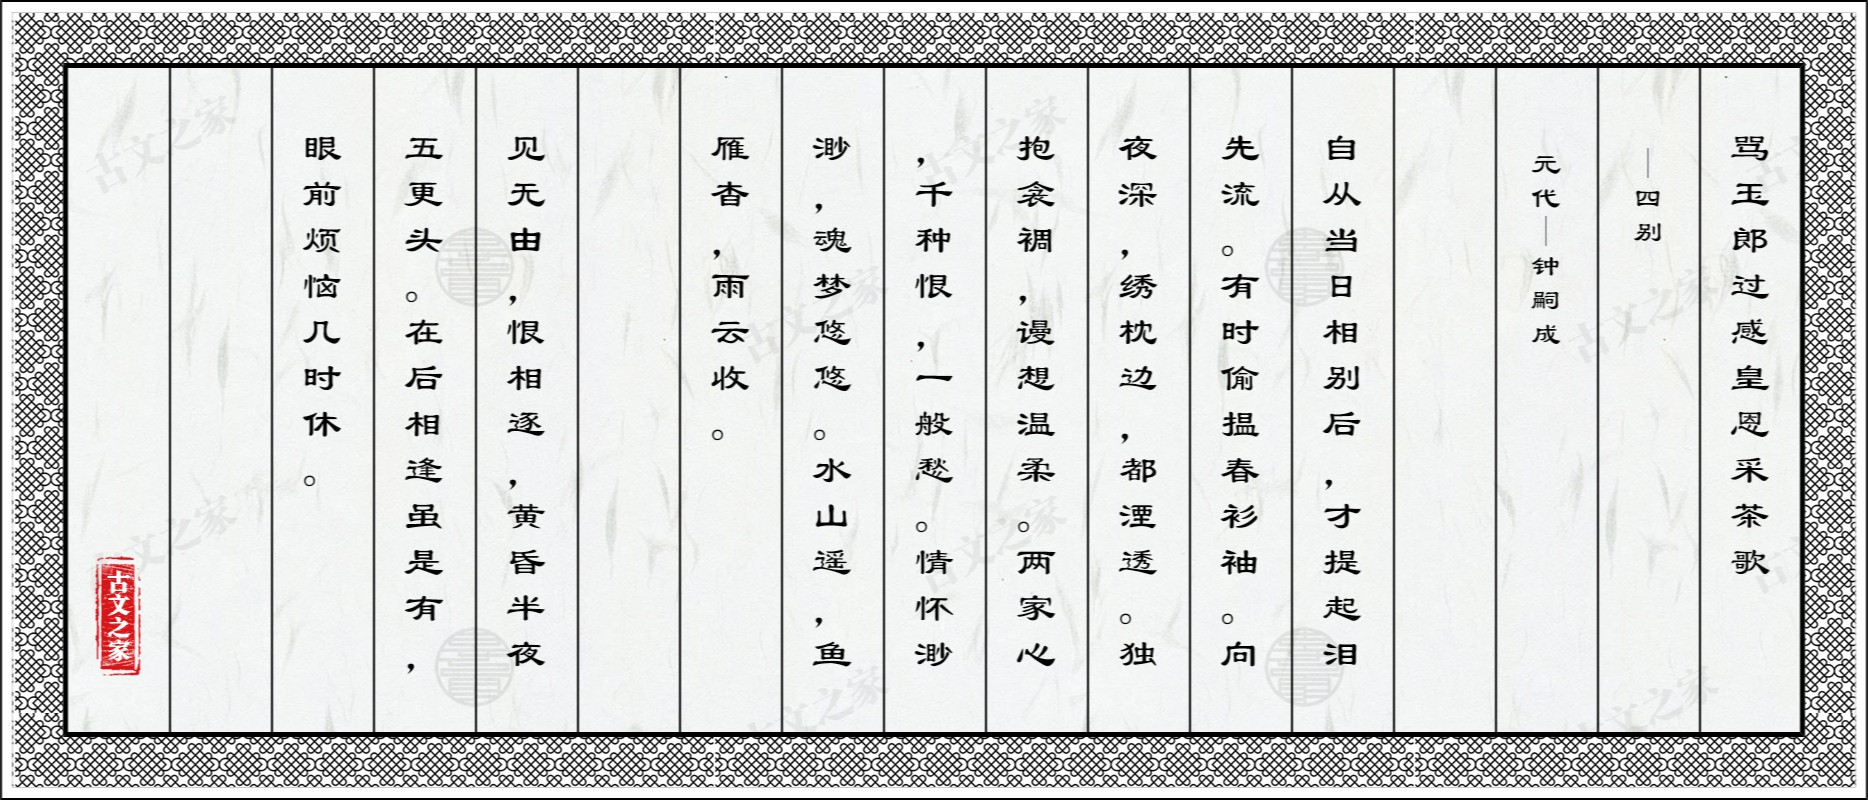 骂玉郎过感皇恩采茶歌
—四别
元代—钟嗣成
自从当日相别后，才提起泪
先流。有时偷揾春衫袖。向
夜深，绣枕边，都湮透。独
抱衾裯，谩想温柔。两家心
，千种恨，一般愁。情怀渺
渺，魂梦悠悠。水山遥，鱼
雁杳，雨云收。
见无由，恨相逐，黄昏半夜
五更头。在后相逢虽是有，
眼前烦恼几时休。
古文之家